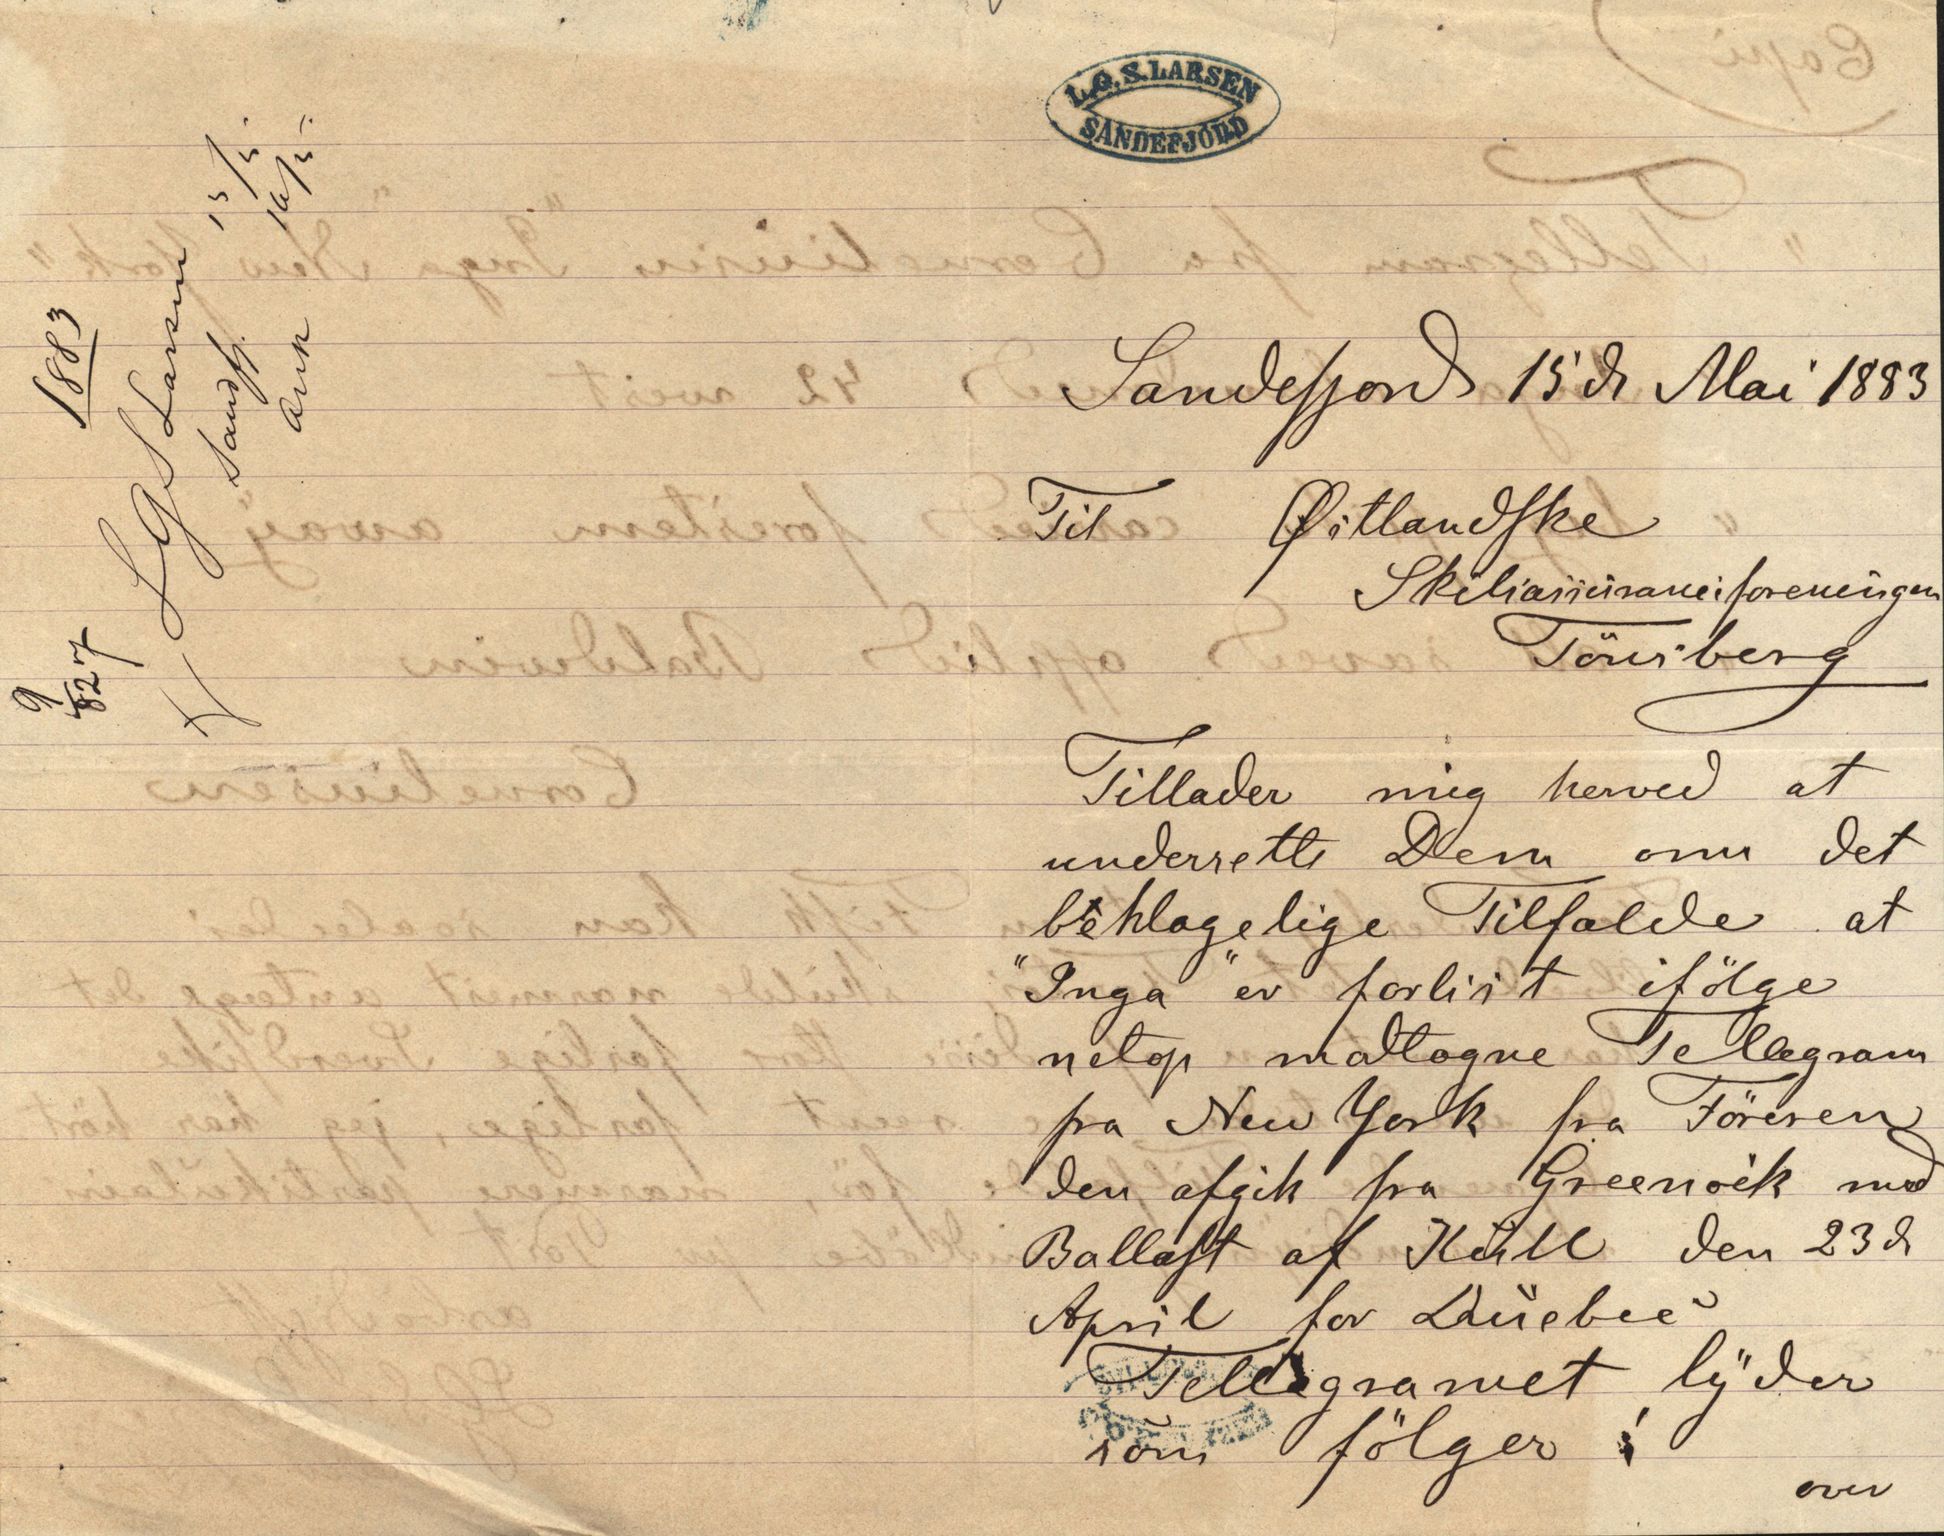 L.G.S. LARSEN
SANDEFJORD
1883
9
827
LGS Larsen 15/5
Sandfj.
ank 16/5
Sandefjord 15 de Mai 1883
Til Østlandske
Skibsassuranceforeningen
Tönsberg
Tillader mig herved at
underrette Dem om det
beklagelige Tilfælde at
"Inga" er forlist ifölge
netop mottagne Tellegram
fra New York fra Föreren
den afgik fra Greenock med
Ballast af Kull den 23 de
April for Quebec
Tellegramet lyder
som fölger :
over